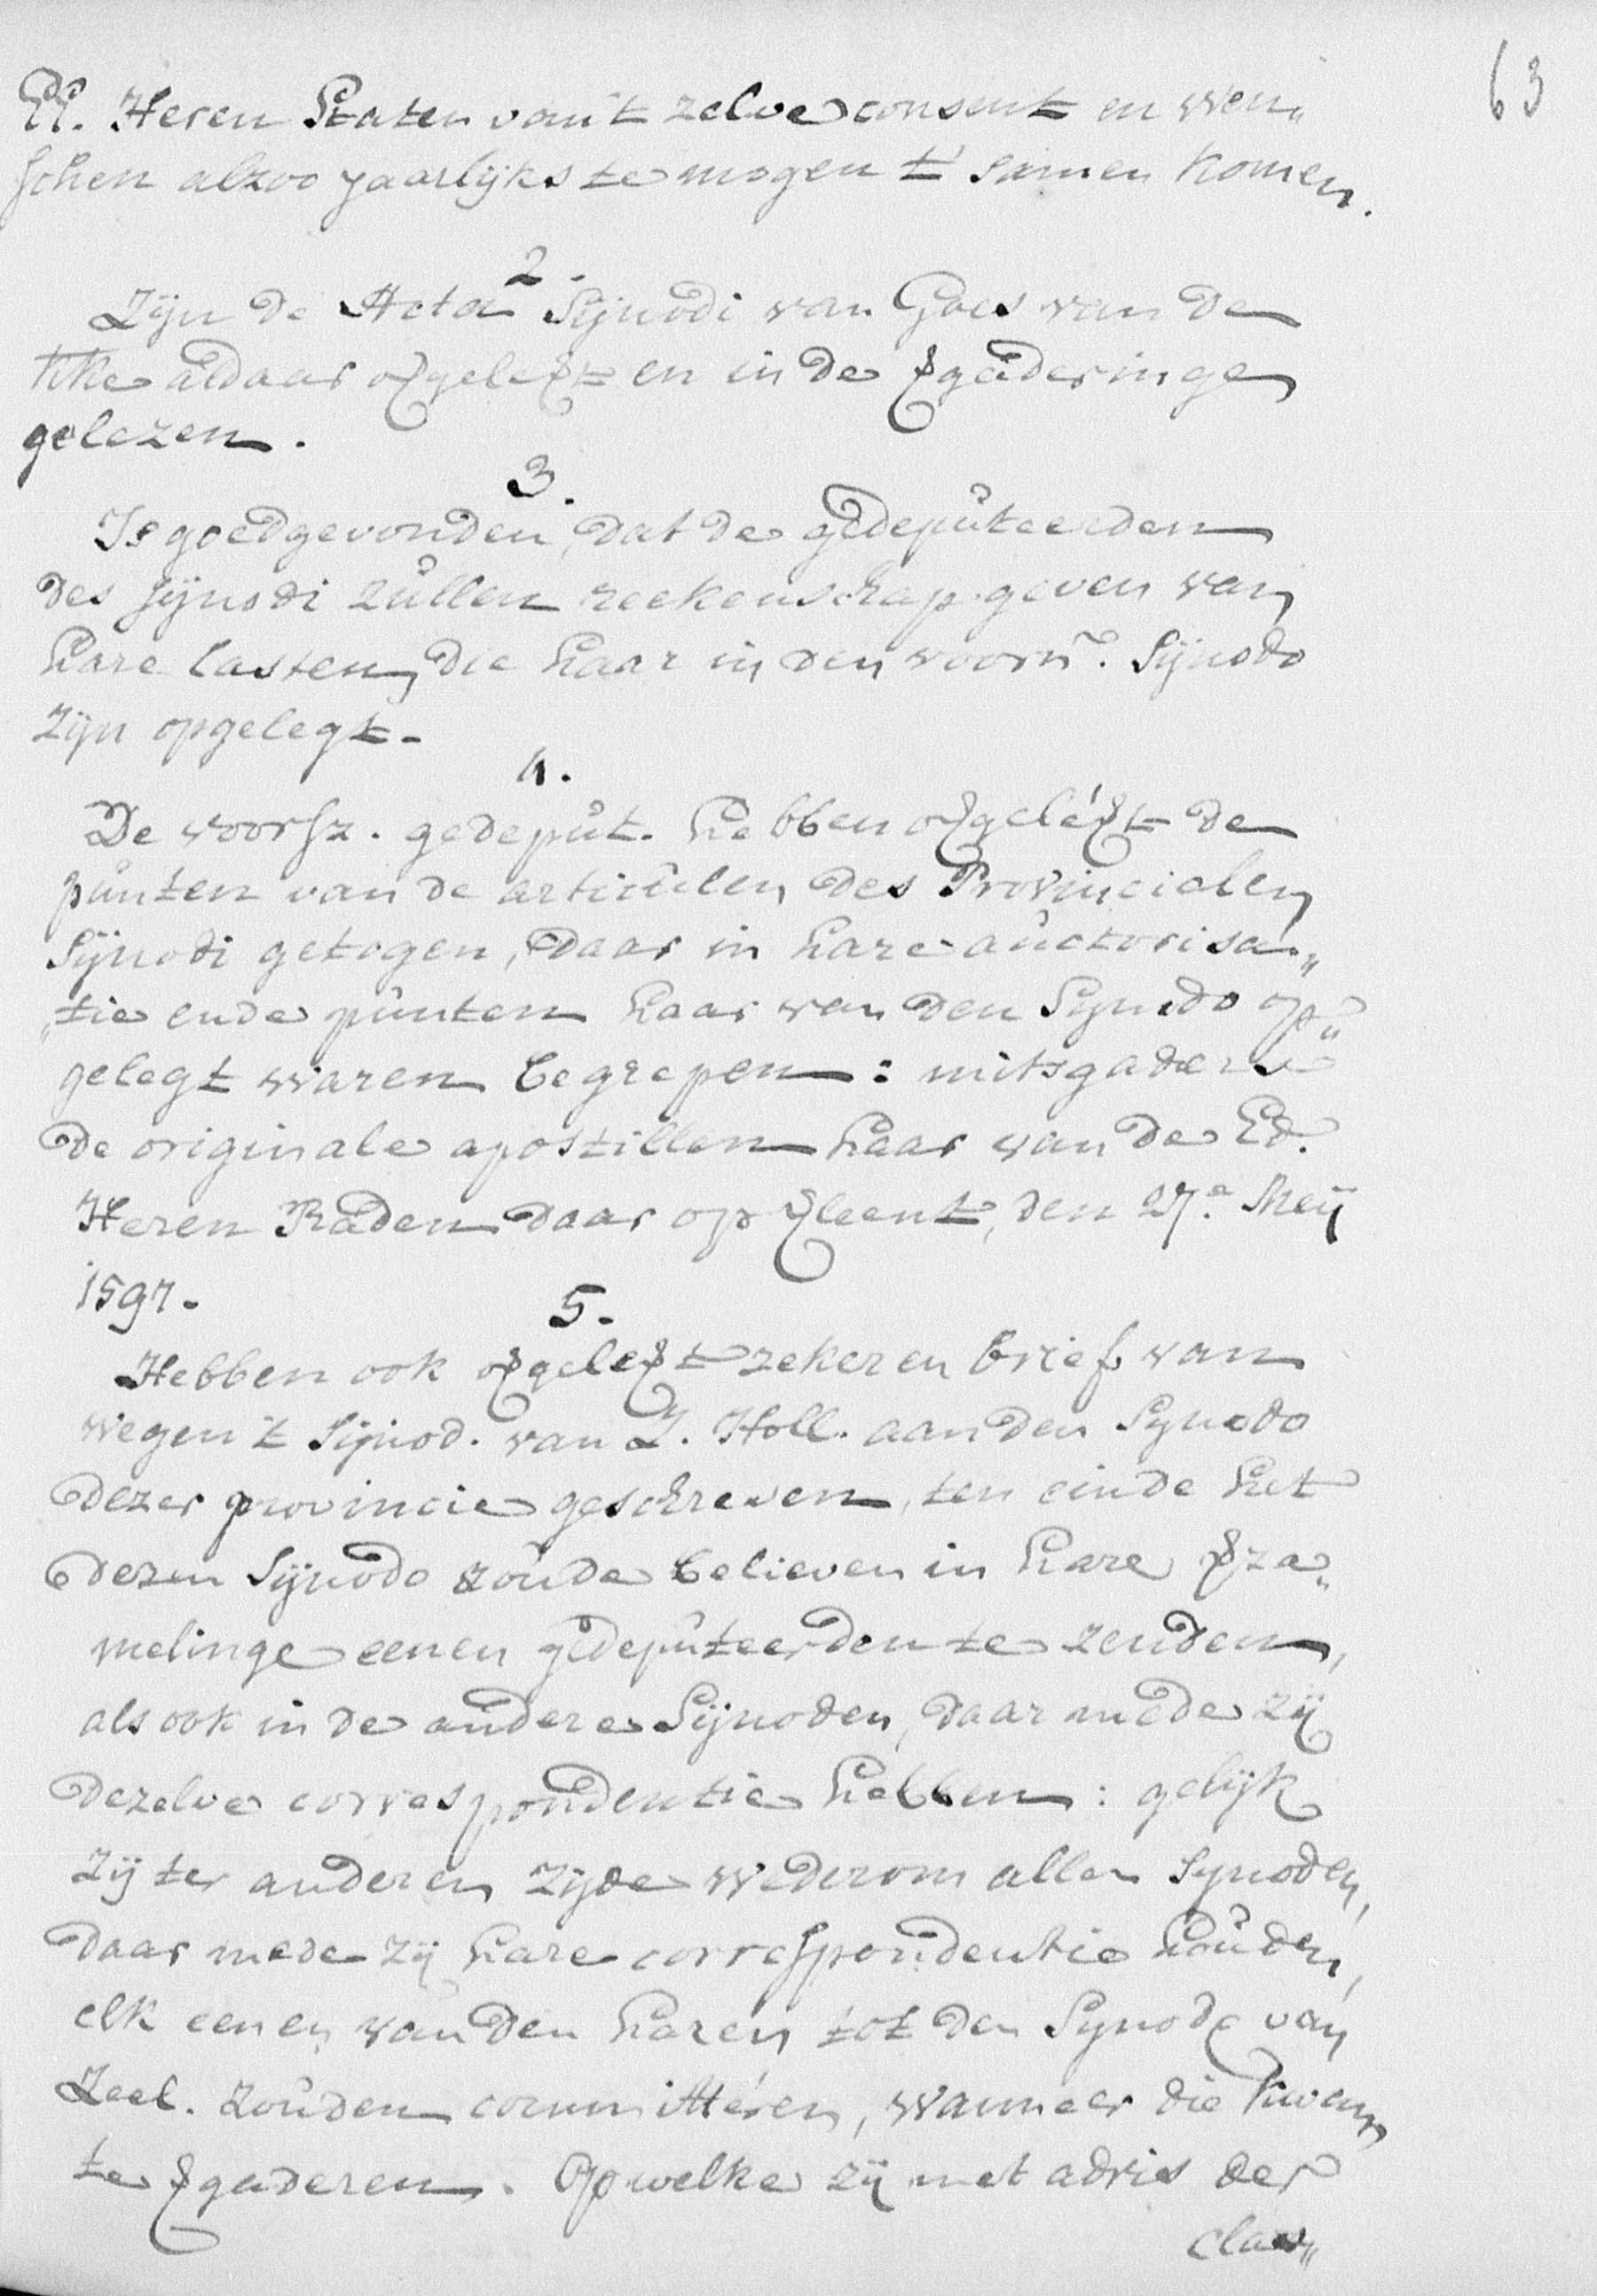 63
EE. Heren Staten van 't zelve consent en wen„
schen alzoo jaarlijks te mogen t' samen komen.
2.
Zijn de Acta Sijnodi van Goes van de
kke aldaar overgelevert en in de vergaderinge
gelezen.
3.
Is goedgevonden, dat de gedeputeerden
des sijnodi zullen reekenschap geven van
hare lasten, die haar in den voorn. Sijnodo
zijn opgelegt.
4.
De voorsz. gedeput. hebben overgelevert de
punten van de articulen des Provincialen
Sijnodi getogen, daar in hare auctorisa„
„tie ende punten haar van den Synodo op„
gelegt waren begrepen: mitsgaders
de originale apostillen haar van de Ed.
Heren Raden daar op verleent, den 27.e Meij
1597.
5.
Hebben ook overgelevert zekeren brief van
wegen 't Sijnod. van Z. Holl. aan den Synodo
dezer provincie geschreven, ten einde het
dezen Sijnodo zoude believen in hare verza„
melinge eenen gedeputeerden te zenden,
als ook in de andere Sijnoden, daar mede zij
dezelve correspondentie hebben: gelijk
zij ter anderen zijde wederom allen Synoden,
daar mede zij hare correspondentie houden,
elk eenen van den haren tot den Synode van
Zeel. zouden committéren, wanneer die kwam
te vergaderen. Op welke zij met advis der
clas„